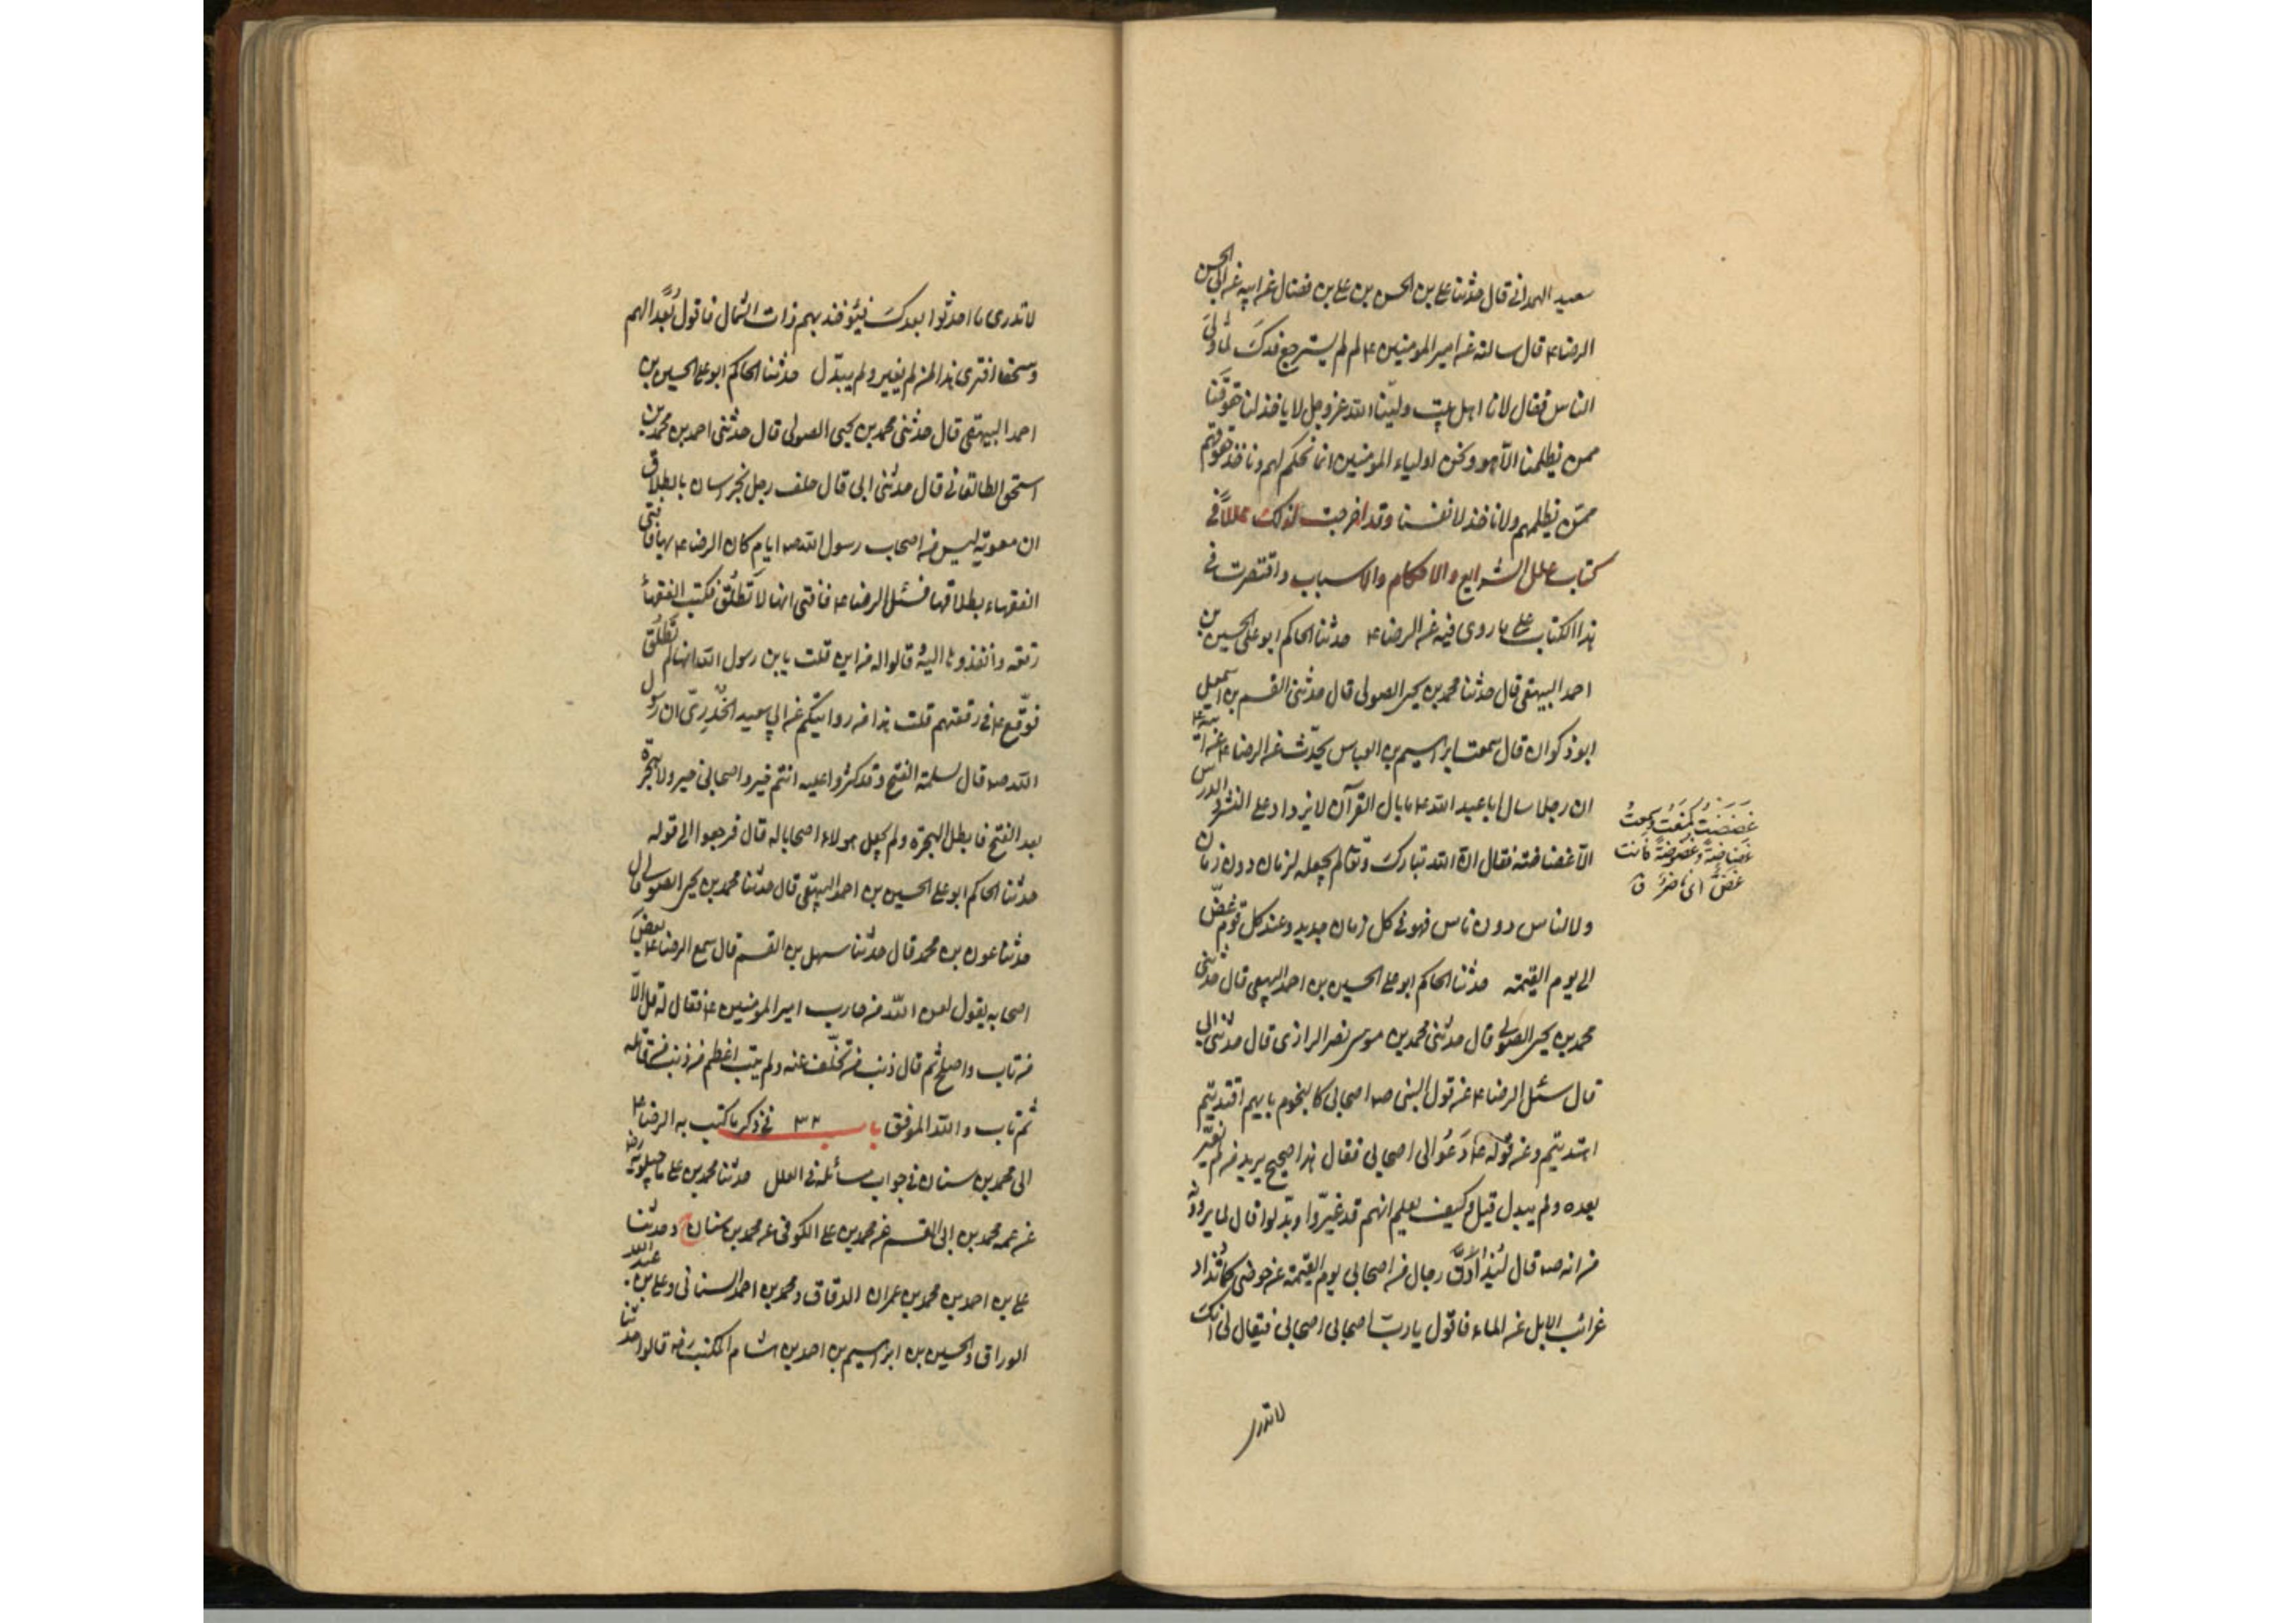 سعيد الهمداني قال حدثنا علي بن الحسن بن علي بن فضال عن ابيه عن ابي الحسن
الرضا ع قال سالته عن امير المومنين ع لم لم يسترجع فدك لما ولي
الناس فقال لانا اهل بيت ولينا الله عز وجل لا ياخذ لنا حقوقنا
ممن يظلمنا الا هو ونحن اولياء المؤمنين انما نحكم لهم وناخذ حقوقهم
ممن يظلمهم ولا ناخذ لانفسنا وقد اخرجت لذلك عللاً في
كتاب علل الشرايع والاحكام والاسباب واقتصرت في
هذا الكتاب على ما روى فيه عن الرضا ع حدثنا الحاكم ابو علي الحسين بن
احمد البيهقي قال حدثنا محمد بن يحيى الصولي قال حدثني القسم بن اسمعيل
ابو ذكوان قال سمعت ابراهيم بن العباس يحدّث عن الرضا ع عن ابيه ع
ان رجلا سال ابا عبد الله ع ما بال القرآن لا يزداد على النشر والدرس
الا غضاضته فقال انّ الله تبارك وتعالى لم يجعله لزمان دون زمان
ولا لناس دون ناس فهو في كل زمان جديد وعند كل قوم غضّ
الى يوم القيمة حدثنا الحاكم ابو علي الحسين بن احمد البيهقي قال حدثني
محمد بن يحيى الصولي قال حدثني محمد بن موسى نصر الرازى قال حدثني ابي
قال سئل الرضا ع عن قول النبي ص اصحابي كالنجوم بايهم اقتديتم
اهتديتم وعن قوله ع دَعُوا لى اصحابي فقال هذا صحيح يريد من لم يغيّر
بعده ولم يبدل قيل وكيف نعلم انهم قد غيّروا وبدّلوا قال لما يروونه
من انه ص قال ليُذادَنّ رجال من اصحابي يوم القيمة عن حوضى كما تُذاد
غرائب الابل عن الماء فاقول يا ربّ اصحابي اصحابي فيقال لى انك
لا تدرى
غَضَضتَ كمَنَعتَ وسمعتُ
غَضاضةً وغُضُوضةً فانت
غضٌّ اى ناضرٌ ق
لا تدرى ما احدثوا بعدكَ فيؤخذ بهم ذات الشمال فاقول بُعداً لهم
وسحقا افترى هذا لمن لم يغير ولم يبدّل حدثنا الحاكم ابو علي الحسين بن
احمد البيهقي قال حدثني محمد بن يحيى الصولى قال حدثني احمد بن محمد بن
اسحق الطالقاني قال حدثني ابى قال حلف رجل بخراسان بالطلاق
ان معوية ليس من اصحاب رسول الله ص ايام كان الرضا ع بها فافتى
الفقهاء بطلاقها فسئل الرضا ع فافتى انها لا تَطلُق فكتب الفقهاء
رقعه وأنفذوها اليه قالوا له من اين قلت يابن رسول الله انها لم تَطلُق
فوقّع ع في رقعتهم قلت هذا من روايتكم عن ابي سعيد الخُدرِيّ ان رسول
الله ص قال لمسلمة الفتح وقد كثروا عليه انتم خير واصحابي خير ولا هجرة
بعد الفتح فابطل الهجرة ولم يجعل هولاء اصحابا له قال فرجعوا الى قوله
حدثنا الحاكم ابو علي الحسين بن احمد البيهقي قال حدثنا محمد بن يحيى الصولى قال
حدثنا عون بن محمد قال حدثنا سهل بن القسم قال سمع الرضا ع بعضَ
اصحابه يقول لعن الله من حارب امير المومنين ع فقال له قل الّا
من تاب واصلح ثم قال ذنب من تخلّف عنه ولم يتب اعظم من ذنب من قاتله
ثم تاب والله الموفق باب ٣٢ في ذكر ما كتب به الرضا ع
الى محمد بن سنان في جواب مسائله في العلل حدثنا محمد بن علي ماجيلويه رض
عن عمه محمد بن ابى القسم عن محمد بن علي الكوفي عن محمد بن سنان وحدثنا
علي بن احمد بن محمد بن عمران الدقاق ومحمد بن احمد السنانى وعلي بن عبد الله
الوراق والحسين بن ابراهيم بن احمد بن هشام المكتب رض قالوا حدثنا